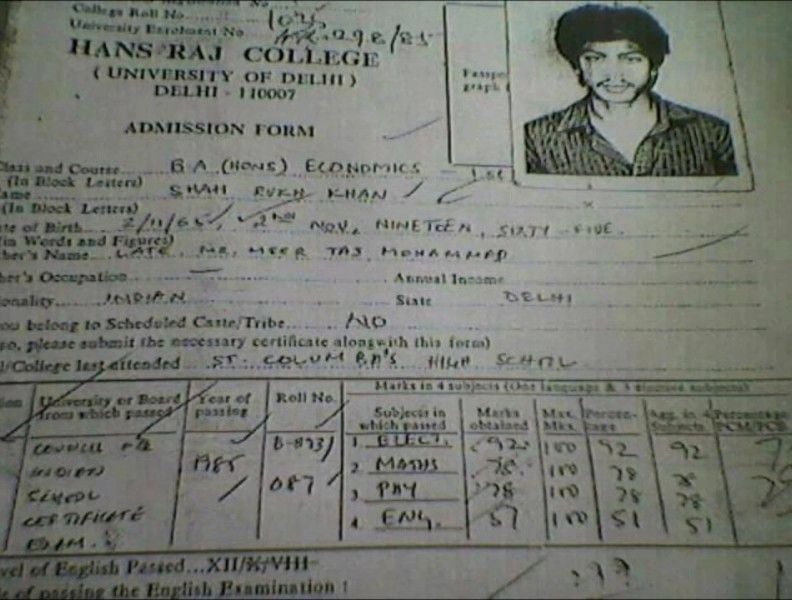 College Roll No. 1025
University Enrolment No 298/85
HANS RAJ COLLEGE
( UNIVERSITY OF DELHI )
DELHI - 110007
ADMISSION FORM
Class and Course B A (HONS) ECONOMICS - Ist
(In Block Letters)
Name SHAH RUKH KHAN
(In Block Letters)
te of Birth 2/11/65, 2ND NOV, NINETEEN, SIXTY-FIVE.
(in Words and Figures)
her's Name LATE. MR. MEER TAJ MOHAMMAD
her's Occupation — Annual Income
ionality INDIAN State DELHI
you belong to Scheduled Caste/Tribe NO
so, please submit the necessary certificate alongwith this form)
l/College last attended ST. COLUMBA'S HIGH SCHOOL
Marks in 4 subjects (One language & 3 elected subjects)
University or Board from which passed Year of passing Roll No. Subjects in which passed Marks obtained Max. Mks. Percentage Agg. in 4 Subjects Percentage PCM/PCB
COUNCIL 1985 D-873/ 1. ELECT. 92 100 92 92
INDIAN 087 2. MATHS 78 100 78 78
SCHOOL 3. PHY 78 100 78 78
CERTIFICATE 4. ENG. 51 100 51 51
EXAM.
vel of English Passed...XII/X/VIII
e of passing the English Examination :